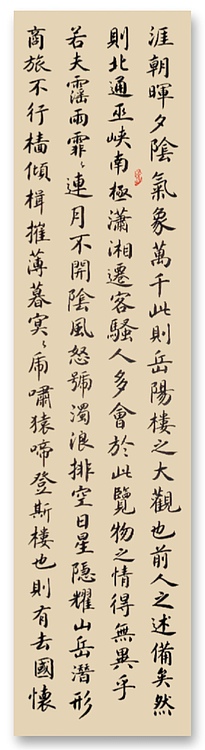 涯朝暉夕陰氣象萬千此則岳陽樓之大觀也前人之述備矣然
則北通巫峽南極瀟湘遷客騷人多會於此覽物之情得無異乎
若夫霪雨霏〻連月不開陰風怒號濁浪排空日星隱耀山岳潛形
商旅不行檣傾楫摧薄暮冥〻虎嘯猿啼登斯樓也則有去國懷